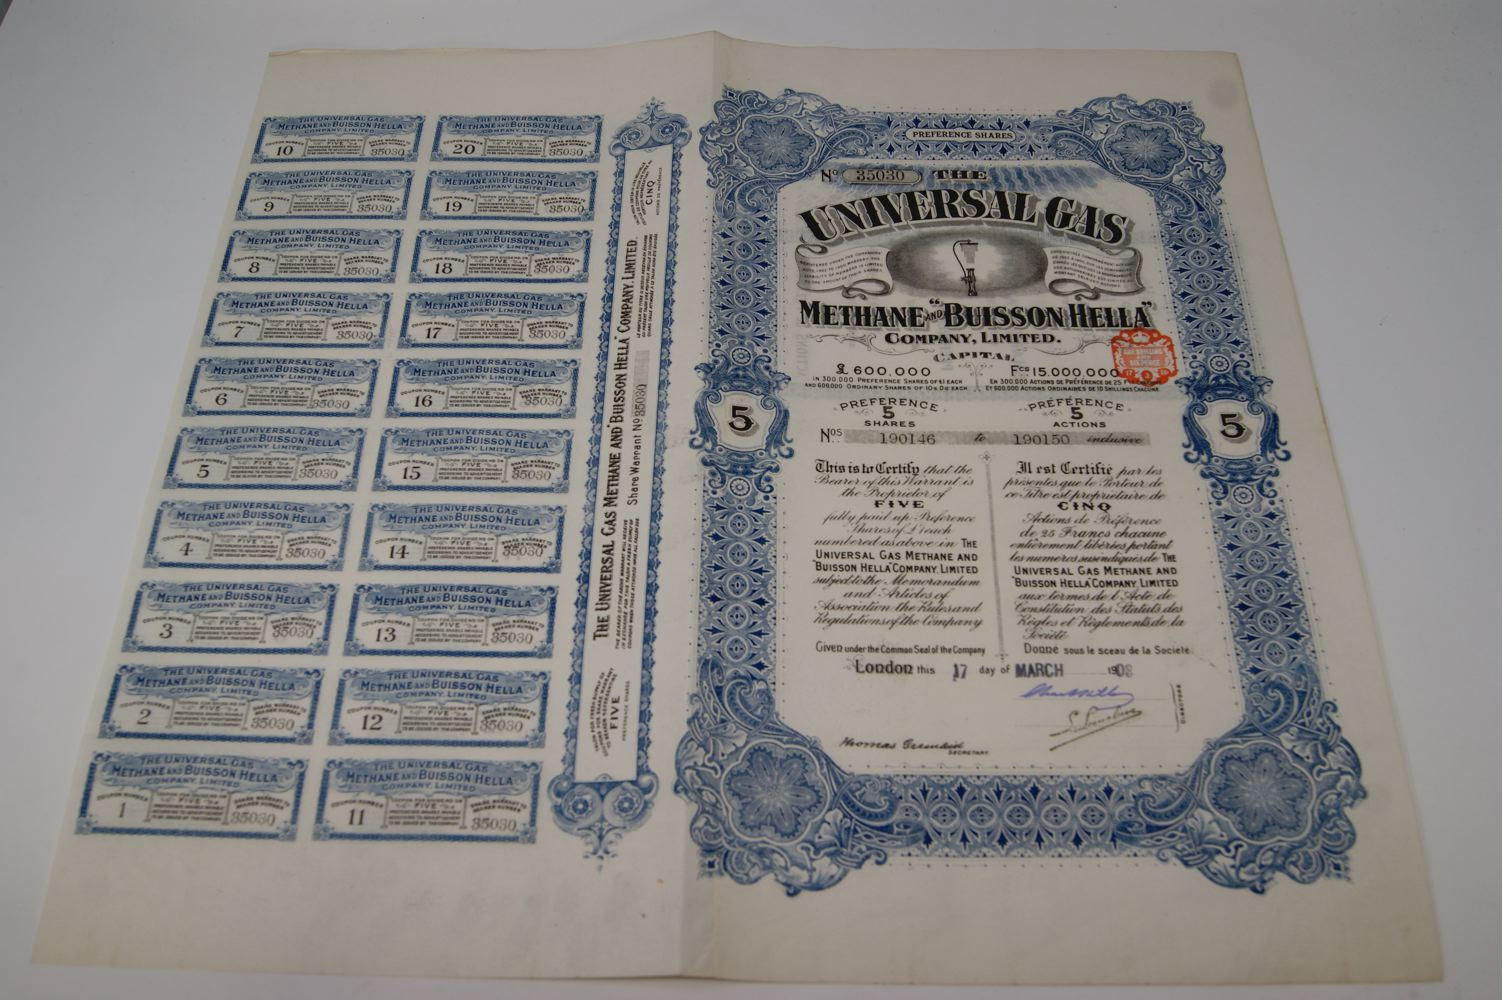 PREFERENCE SHARES
Nº 35030
THE
UNIVERSAL GAS
METHANE AND "BUISSON HELLA"
COMPANY, LIMITED.
CAPITAL
£ 600,000
IN 300.000 PREFERENCE SHARES OF £1 EACH
AND 600,000 ORDINARY SHARES OF 10s 0d EACH
Fcs 15.000.000
EN 300.000 ACTIONS DE PRÉFÉRENCE DE 25 FRANCS
ET 600.000 ACTIONS ORDINAIRES DE 10 SHILLINGS CHACUNE
5
5
PREFERENCE
5
SHARES
PRÉFÉRENCE
5
ACTIONS
Nos 190146 to 190150 inclusive
This is to Certify that the
Bearer of this Warrant is
the Proprietor of
FIVE
fully paid up Preference
Shares of £1 each
numbered as above in THE
UNIVERSAL GAS METHANE AND
"BUISSON HELLA" COMPANY, LIMITED
subject to the Memorandum
and Articles of
Association the Rules and
Regulations of the Company
Given under the Common Seal of the Company
Il est Certifié par les
présentes que le Porteur de
ce Titre est propriétaire de
CINQ
Actions de Préférence
de 25 Francs chacune
entièrement libérées portant
les numéros susindiqués de THE
UNIVERSAL GAS METHANE AND
"BUISSON HELLA" COMPANY, LIMITED
aux termes de l'Acte de
Constitution des Statuts des
Règles et Règlements de la
Société
Donné sous le sceau de la Société
London this 17 day of MARCH 1908
DIRECTORS
SECRETARY.
THE UNIVERSAL GAS METHANE AND "BUISSON HELLA" COMPANY, LIMITED.
Share Warrant Nº 35030
CINQ
FIVE
PREFERENCE SHARES
THE UNIVERSAL GAS
METHANE AND BUISSON HELLA
COMPANY, LIMITED
COUPON NUMBER
10
FIVE
35030
THE UNIVERSAL GAS
METHANE AND BUISSON HELLA
COMPANY, LIMITED
COUPON NUMBER
20
FIVE
35030
THE UNIVERSAL GAS
METHANE AND BUISSON HELLA
COMPANY, LIMITED
COUPON NUMBER
9
FIVE
35030
THE UNIVERSAL GAS
METHANE AND BUISSON HELLA
COMPANY, LIMITED
COUPON NUMBER
19
FIVE
35030
THE UNIVERSAL GAS
METHANE AND BUISSON HELLA
COMPANY, LIMITED
COUPON NUMBER
8
FIVE
35030
THE UNIVERSAL GAS
METHANE AND BUISSON HELLA
COMPANY, LIMITED
COUPON NUMBER
18
FIVE
35030
THE UNIVERSAL GAS
METHANE AND BUISSON HELLA
COMPANY, LIMITED
COUPON NUMBER
7
FIVE
35030
THE UNIVERSAL GAS
METHANE AND BUISSON HELLA
COMPANY, LIMITED
COUPON NUMBER
17
FIVE
35030
THE UNIVERSAL GAS
METHANE AND BUISSON HELLA
COMPANY, LIMITED
COUPON NUMBER
6
FIVE
35030
THE UNIVERSAL GAS
METHANE AND BUISSON HELLA
COMPANY, LIMITED
COUPON NUMBER
16
FIVE
35030
THE UNIVERSAL GAS
METHANE AND BUISSON HELLA
COMPANY, LIMITED
COUPON NUMBER
5
FIVE
35030
THE UNIVERSAL GAS
METHANE AND BUISSON HELLA
COMPANY, LIMITED
COUPON NUMBER
15
FIVE
35030
THE UNIVERSAL GAS
METHANE AND BUISSON HELLA
COMPANY, LIMITED
COUPON NUMBER
4
FIVE
35030
THE UNIVERSAL GAS
METHANE AND BUISSON HELLA
COMPANY, LIMITED
COUPON NUMBER
14
FIVE
35030
THE UNIVERSAL GAS
METHANE AND BUISSON HELLA
COMPANY, LIMITED
COUPON NUMBER
3
FIVE
35030
THE UNIVERSAL GAS
METHANE AND BUISSON HELLA
COMPANY, LIMITED
COUPON NUMBER
13
FIVE
35030
THE UNIVERSAL GAS
METHANE AND BUISSON HELLA
COMPANY, LIMITED
COUPON NUMBER
2
FIVE
35030
THE UNIVERSAL GAS
METHANE AND BUISSON HELLA
COMPANY, LIMITED
COUPON NUMBER
12
FIVE
35030
THE UNIVERSAL GAS
METHANE AND BUISSON HELLA
COMPANY, LIMITED
COUPON NUMBER
1
FIVE
35030
THE UNIVERSAL GAS
METHANE AND BUISSON HELLA
COMPANY, LIMITED
COUPON NUMBER
11
FIVE
35030